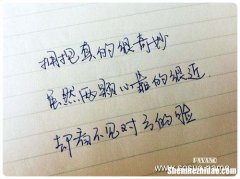 拥抱真的很奇妙
虽然两颗心靠的很近
却看不见对方的脸
FAYANG
Shenmezhidao.com